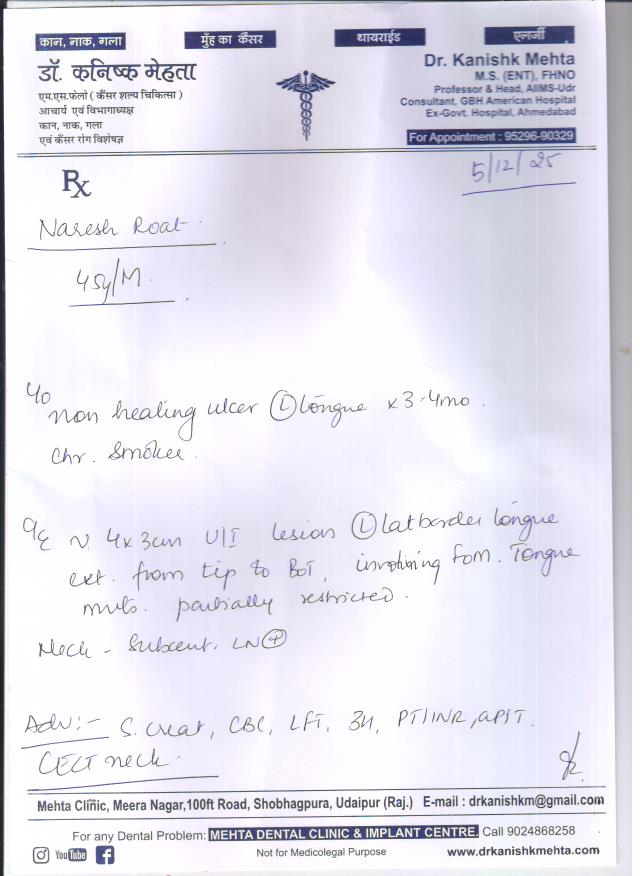 कान, नाक, गला
मुँह का कैंसर
थायराईड
एलर्जी
डॉ. कनिष्क मेहता
एम.एस.फेलो ( कैंसर शल्य चिकित्सा )
आचार्य एवं विभागाध्यक्ष
कान, नाक, गला
एवं कैंसर रोग विशेषज्ञ
Dr. Kanishk Mehta
M.S. (ENT), FHNO
Professor & Head, AIIMS-Udr
Consultant, GBH American Hospital
Ex-Govt. Hospital, Ahmedabad
For Appointment : 95296-90329
5/12/25
Rx
Naresh Roat
45y/M
C/o
Non healing ulcer Ⓛ tongue x 3-4mo.
Chr. Smoker.
O/E ~ 4x3cm U/I lesion Ⓛ lat border tongue
ext. from tip to BOT, involving FOM. Tongue
mvts. partially restricted.
Neck - Subcent. LN⊕
Adv:- S. Creat, CBC, LFT, 3H, PT/INR, aPTT.
CECT neck.
Mehta Clinic, Meera Nagar,100ft Road, Shobhagpura, Udaipur (Raj.) E-mail : drkanishkm@gmail.com
For any Dental Problem: MEHTA DENTAL CLINIC & IMPLANT CENTRE, Call 9024868258
YouTube
Not for Medicolegal Purpose
www.drkanishkmehta.com